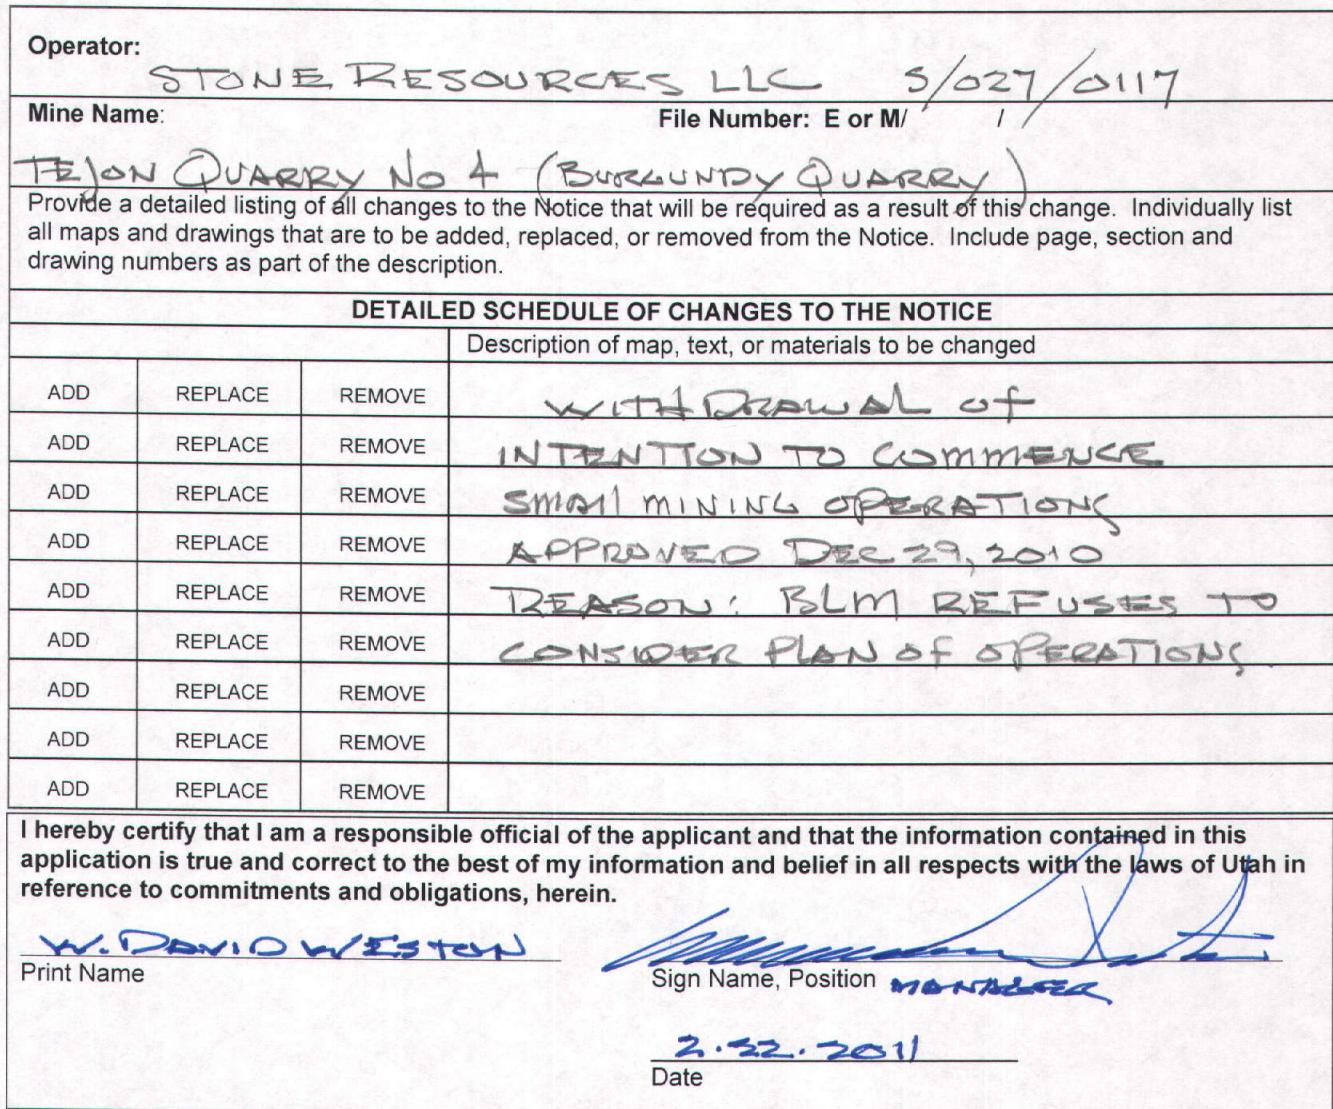 Operator:
STONE RESOURCES LLC S/027/0117
Mine Name: File Number: E or M/ /
TEJON QUARRY NO 4 (BURGUNDY QUARRY)
Provide a detailed listing of all changes to the Notice that will be required as a result of this change. Individually list
all maps and drawings that are to be added, replaced, or removed from the Notice. Include page, section and
drawing numbers as part of the description.
DETAILED SCHEDULE OF CHANGES TO THE NOTICE
Description of map, text, or materials to be changed
ADD REPLACE REMOVE WITHDRAWAL OF
ADD REPLACE REMOVE INTENTION TO COMMENCE
ADD REPLACE REMOVE SMALL MINING OPERATIONS
ADD REPLACE REMOVE APPROVED DEC 29, 2010
ADD REPLACE REMOVE REASON: BLM REFUSES TO
ADD REPLACE REMOVE CONSIDER PLAN OF OPERATIONS.
ADD REPLACE REMOVE
ADD REPLACE REMOVE
ADD REPLACE REMOVE
I hereby certify that I am a responsible official of the applicant and that the information contained in this
application is true and correct to the best of my information and belief in all respects with the laws of Utah in
reference to commitments and obligations, herein.
W. DAVID WESTON
Print Name
Sign Name, Position MANAGER
2.22.2011
Date